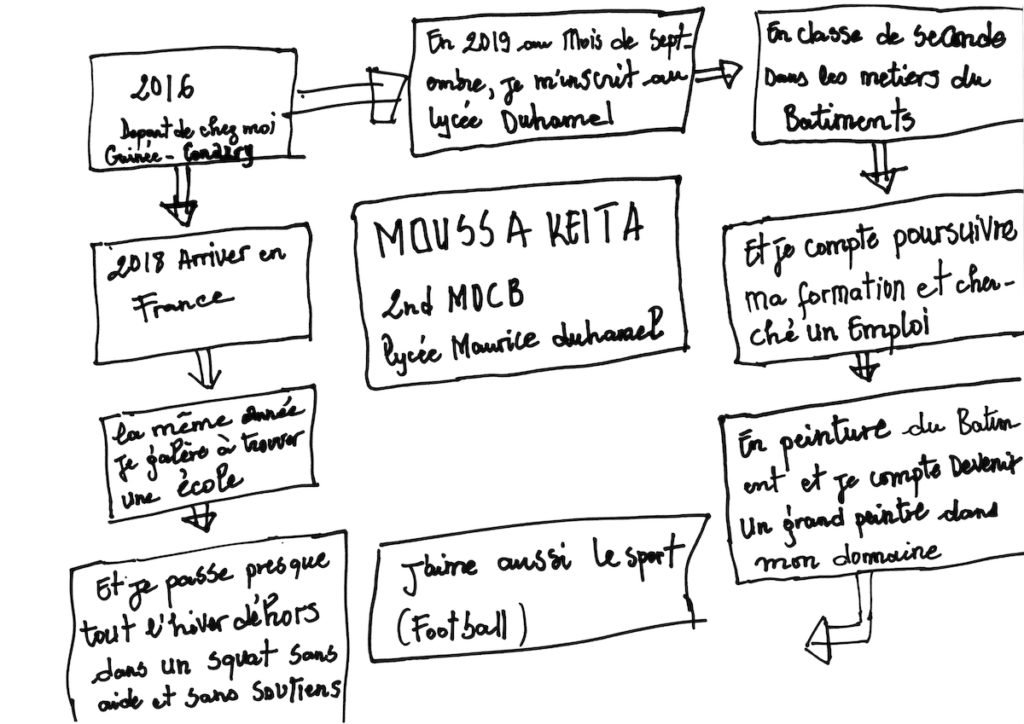 2016
Depart de chez moi
Guinée - Conakry
2018 Arriver en
France
la même année
je galère à trouver
une école
Et je passe presque
tout l'hiver déhors
dans un squat sans
aide et sans soutiens
En 2019 au Mois de Sept-
embre, je m'inscrit au
lycée Duhamel
En classe de seconde
Dans les metiers du
Batiments
Et je compte poursuivre
ma formation et cher-
ché un Emploi
En peinture du Batim
ent et je compte Devenir
Un grand peintre dans
mon dommaine
MOUSSA KEITA
2nd MDCB
lycée Maurice duhamel
J'aime aussi le sport
(Football)